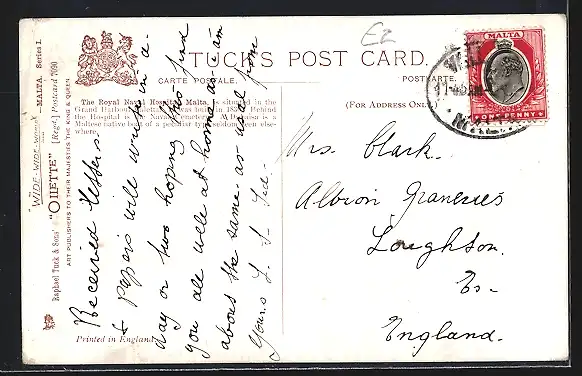 TUCK'S POST CARD.
CARTE POSTALE.
POSTKARTE.
(FOR ADDRESS ONLY.)
The Royal Naval Hospital, Malta, is situated in the
Grand Harbour
was built in
Behind
the Hospital is the Naval Cemetery. A Dghaisa is a
Maltese native boat of a peculiar type seldom seen else-
where.
"WIDE-WIDE-WORLD" MALTA. Series I.
Raphael Tuck & Sons' "OILETTE" [Regd.] Postcard 7690
ART PUBLISHERS TO THEIR MAJESTIES THE KING & QUEEN
Printed in England
Received letters
& papers will write in a
day or two hoping this find
you all well at home as I am
about the same as usual from
Yours
Mrs. Clark.
Albion Graneries
Loughton.
Es-
England.
EZ
MALTA
POSTAGE
ONE PENNY